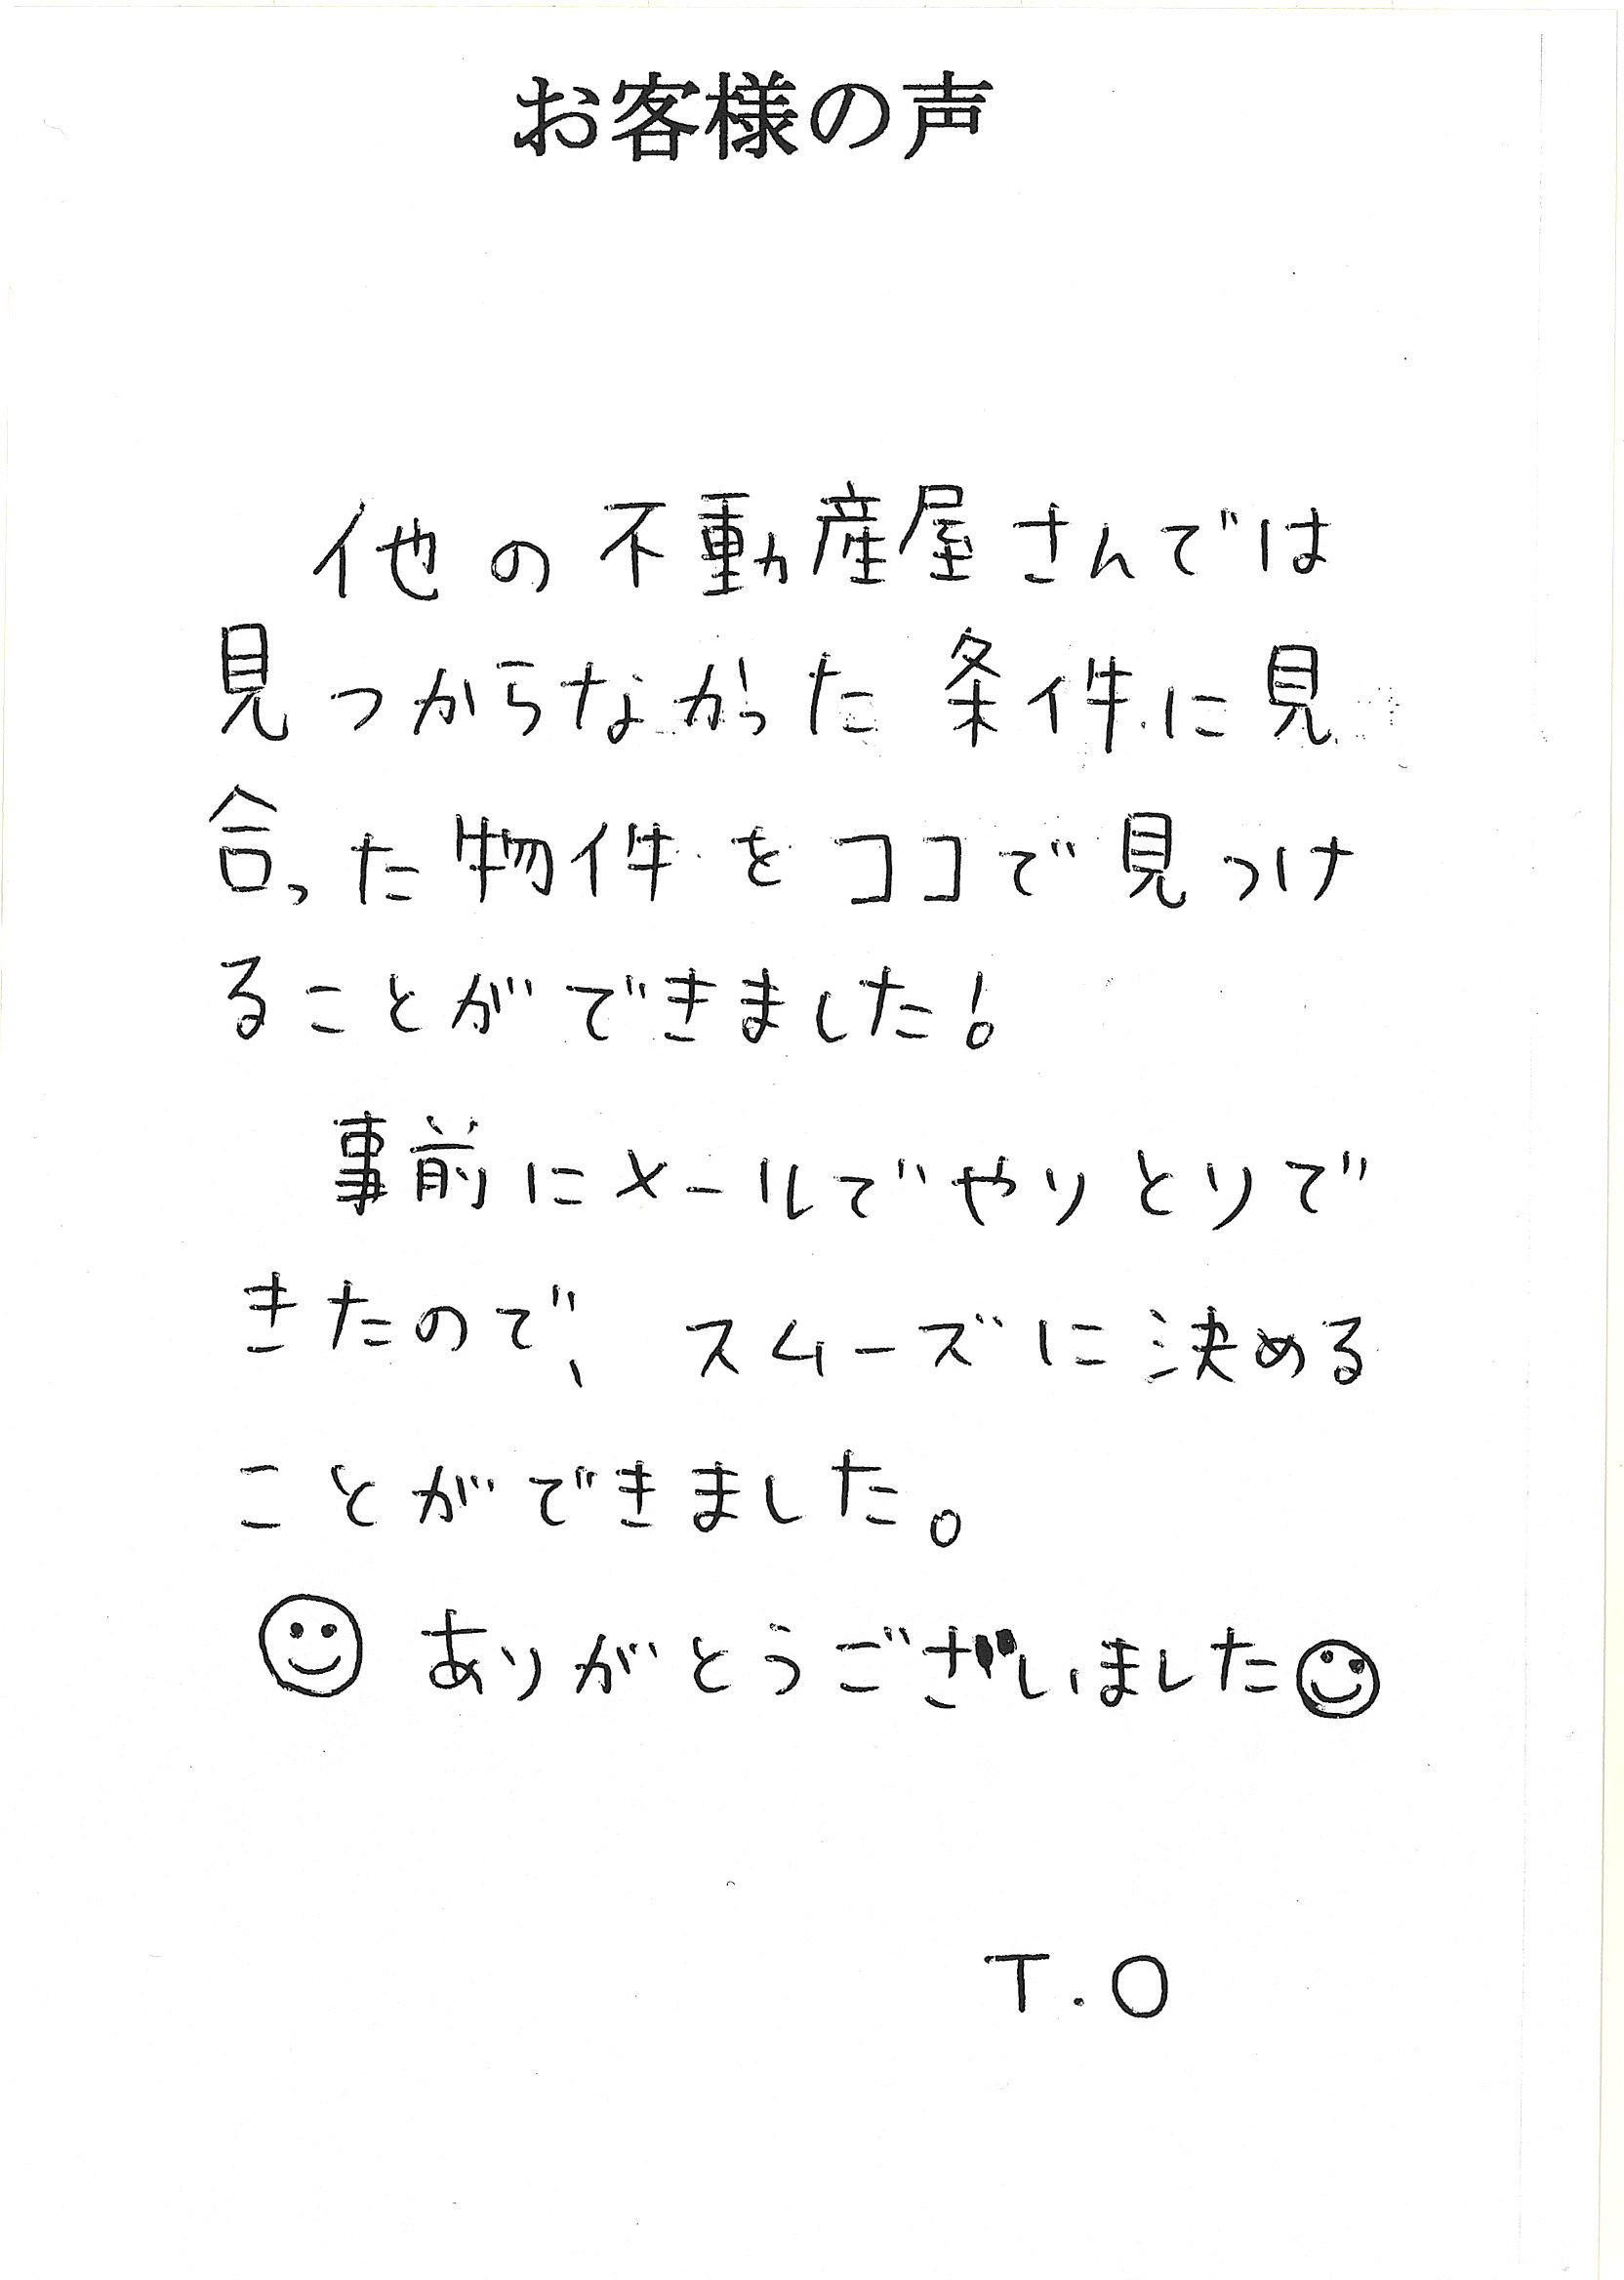 お客様の声
他の不動産屋さんでは
見つからなかった条件に見
合った物件をココで見つけ
ることができました!
事前にメールでやりとりで
きたので、スムーズに決める
ことができました。
ありがとうございました
T.O